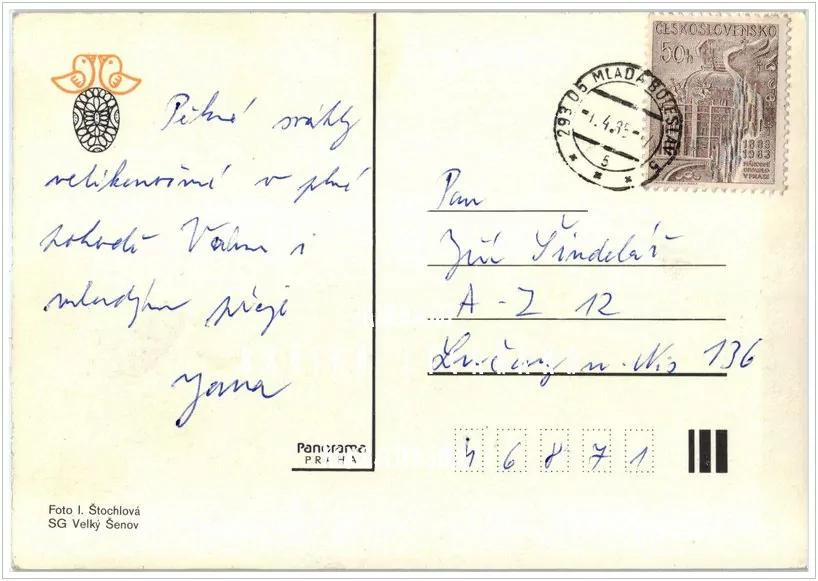 Pěkné svátky
velikonoční v plné
pohodě Vám i
mladým přeje
Jana
Panorama
PRAHA
Foto I. Štochlová
SG Velký Šenov
ČESKOSLOVENSKO
50h
1883
1983
NÁRODNÍ
DIVADLO
V PRAZE
293 05 MLADÁ BOLESLAV 5
-1.4.85-
5
Pan
Jiří Šindelář
A-Z 12
Lučany n. Nis 136
46871